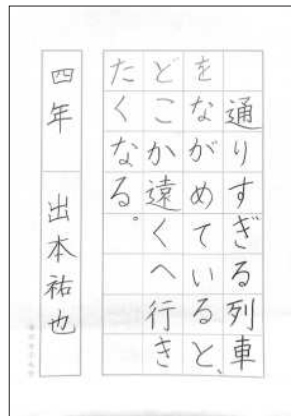 通りすぎる列車
をながめていると、
どこか遠くへ行き
たくなる。
四年 出本祐也